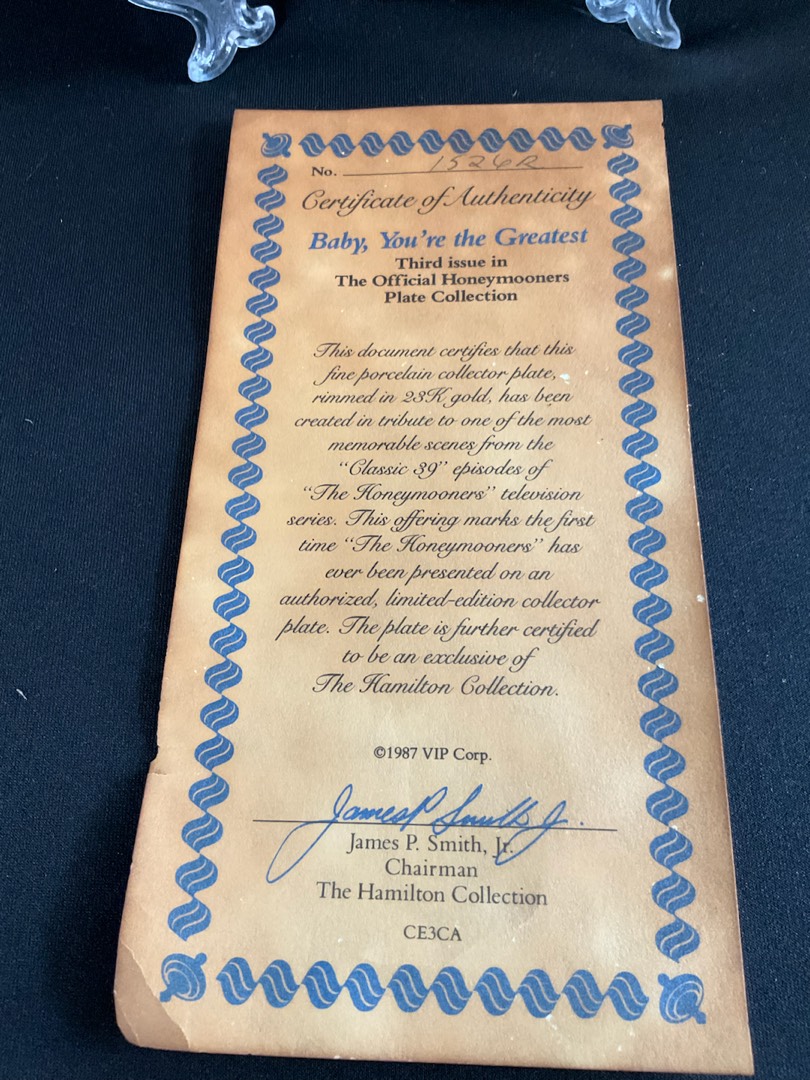 No. 1526R
Certificate of Authenticity
Baby, You're the Greatest
Third issue in
The Official Honeymooners
Plate Collection
This document certifies that this
fine porcelain collector plate,
rimmed in 23K gold, has been
created in tribute to one of the most
memorable scenes from the
"Classic 39" episodes of
"The Honeymooners" television
series. This offering marks the first
time "The Honeymooners" has
ever been presented on an
authorized, limited-edition collector
plate. The plate is further certified
to be an exclusive of
The Hamilton Collection.
©1987 VIP Corp.
James P Smith Jr.
James P. Smith, Jr.
Chairman
The Hamilton Collection
CE3CA